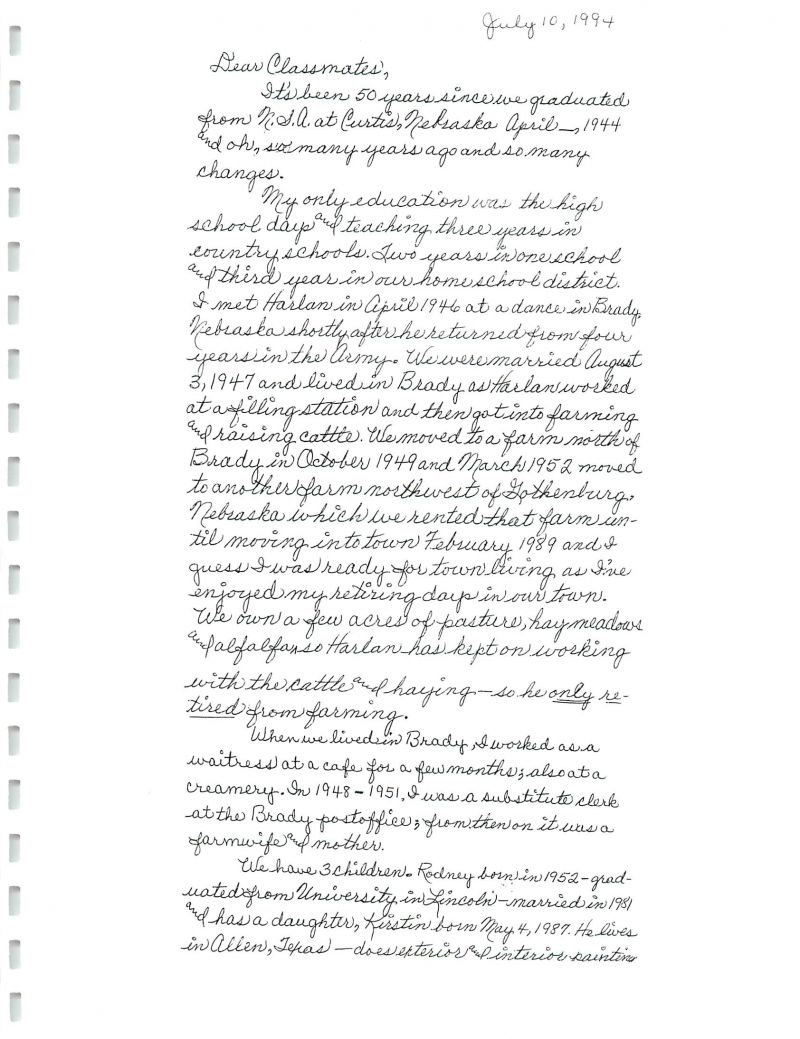 July 10, 1994
Dear Classmates,
It's been 50 years since we graduated
from N.S.A. at Curtis, Nebraska April —, 1944
and oh, so many years ago and so many
changes.
My only education was the high
school days and teaching three years in
country schools. Two years in one school
and third year in our home school district.
I met Harlan in April 1946 at a dance in Brady,
Nebraska shortly after he returned from four
years in the Army. We were married August
3, 1947 and lived in Brady as Harlan worked
at a filling station and then got into farming
and raising cattle. We moved to a farm north of
Brady in October 1949 and March 1952 moved
to another farm northwest of Gothenburg,
Nebraska which we rented that farm un-
til moving into town February 1989 and I
guess I was ready for town living as I've
enjoyed my retiring days in our town.
We own a few acres of pasture, hay meadows
and alfalfa, so Harlan has kept on working
with the cattle and haying – so he only re-
tired from farming.
When we lived in Brady, I worked as a
waitress at a cafe for a few months; also at a
creamery. In 1948 – 1951, I was a substitute clerk
at the Brady postoffice; from then on it was a
farmwife and mother.
We have 3 children. Rodney born in 1952 – grad-
uated from University in Lincoln – married in 1981
and has a daughter, Kirstin born May 4, 1987. He lives
in Allen, Texas – does exterior and interior painting